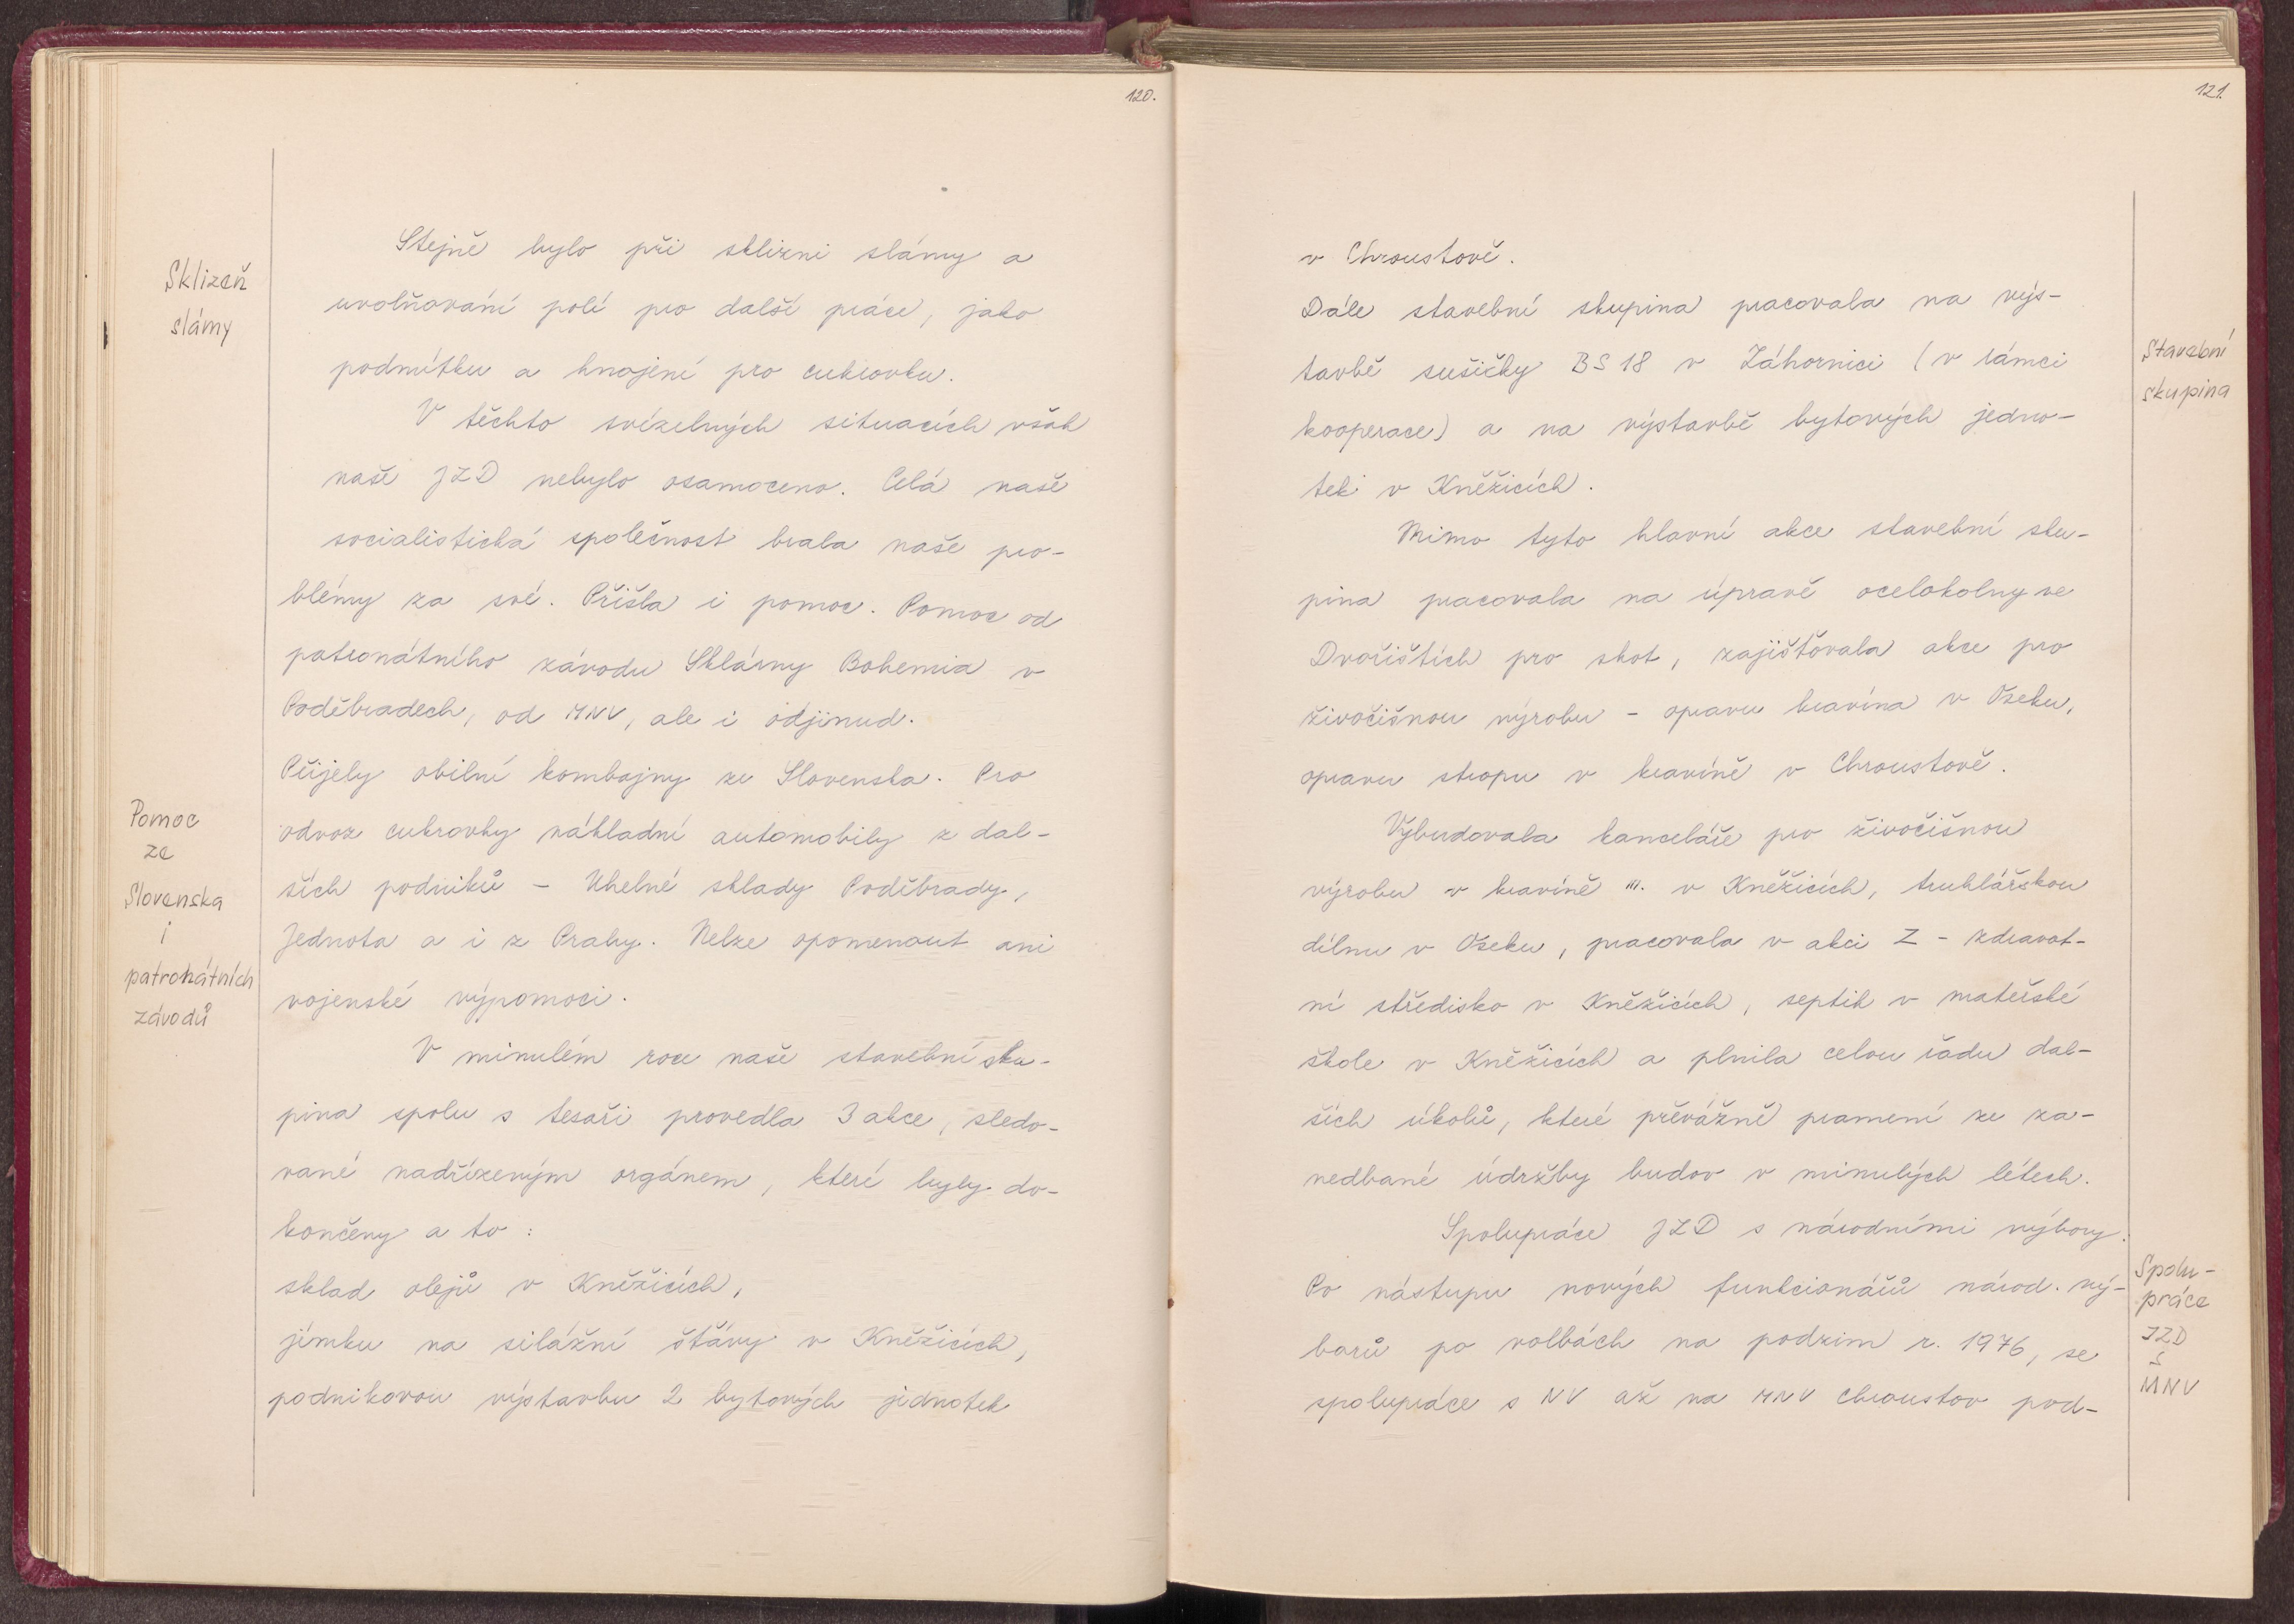 120.
Sklizeň
slámy
Stejně bylo při sklizni slámy a
uvolňování polí pro další práce, jako
podmítku a hnojení pro cukrovku.
V těchto svízelných situacích však
naše JZD nebylo osamoceno. Celá naše
socialistická společnost brala naše pro-
blémy za své. Přišla i pomoc. Pomoc od
patronátního závodu Sklárny Bohemia v
Poděbradech, od MNV, ale i odjinud.
Přijely obilní kombajny ze Slovenska. Pro
odvoz cukrovky nákladní automobily z dal-
ších podniků - Uhelné sklady Poděbrady,
Jednota a i z Prahy. Nelze opomenout ani
vojenské výpomoci.
Pomoc
ze
Slovenska
i
patronátních
závodů
V minulém roce naše stavební sku-
pina spolu s tesaři provedla 3 akce, sledo-
vané nadřízeným orgánem, které byly do-
končeny a to :
sklad olejů v Kněžicích,
jímku na silážní šťávy v Kněžicích,
podnikovou výstavbu 2 bytových jednotek
121.
v Chroustově.
Dále stavební skupina pracovala na výs-
tavbě sušičky BS 18 v Záhornici (v rámci
kooperace) a na výstavbě bytových jedno-
tek v Kněžicích.
Stavební
skupina
Mimo tyto hlavní akce stavební sku-
pina pracovala na úpravě ocelokolny ve
Dvořištích pro skot, zajišťovala akce pro
živočišnou výrobu - opravu kravína v Oseku,
opravu stropu v kravíně v Chroustově.
Vybudovala kanceláře pro živočišnou
výrobu v kravíně III. v Kněžicích, truhlářskou
dílnu v Oseku, pracovala v akci Z - zdravot-
ní středisko v Kněžicích, septik v mateřské
škole v Kněžicích a plnila celou řadu dal-
ších úkolů, které převážně pramení ze za-
nedbané údržby budov v minulých létech.
Spolupráce JZD s národními výbory.
Po nástupu nových funkcionářů národ. vý-
borů po volbách na podzim r. 1976, se
spolupráce s NV až na MNV Chroustov pod-
Spolu-
práce
JZD
s
MNV